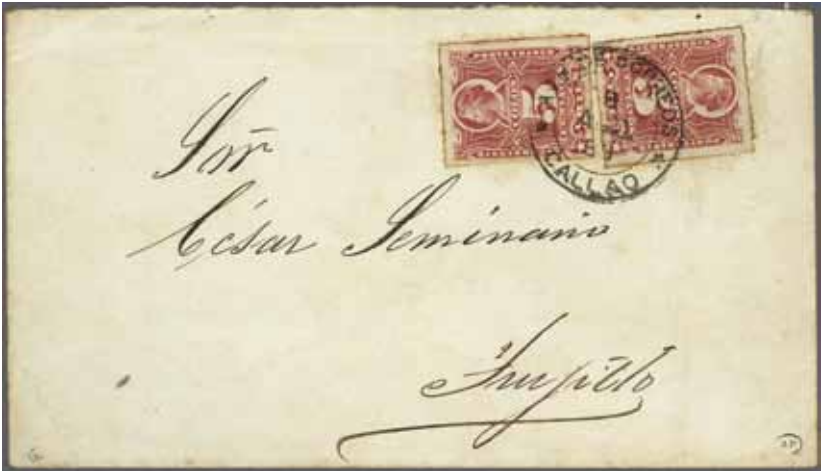 5 5
CORREOS
CALLAO
Señr
César Seminario
Trujillo
AP